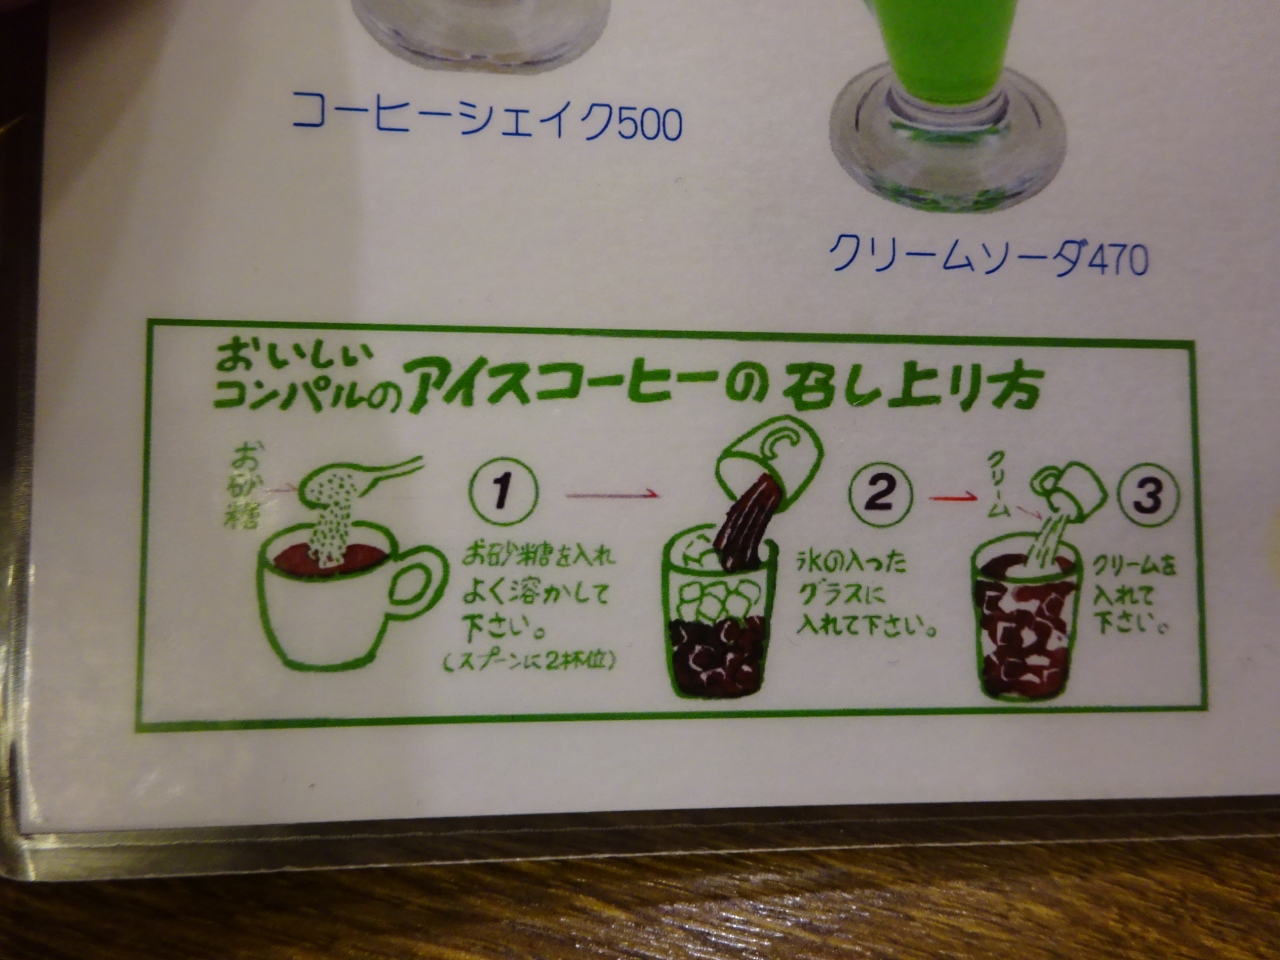 コーヒーシェイク500
クリームソーダ470
おいしい
コンパルのアイスコーヒーの召し上り方
お砂糖
1
お砂糖を入れ
よく溶かして
下さい。
(スプーンに2杯位)
2
氷の入った
グラスに
入れて下さい。
クリーム
3
クリームを
入れて
下さい。